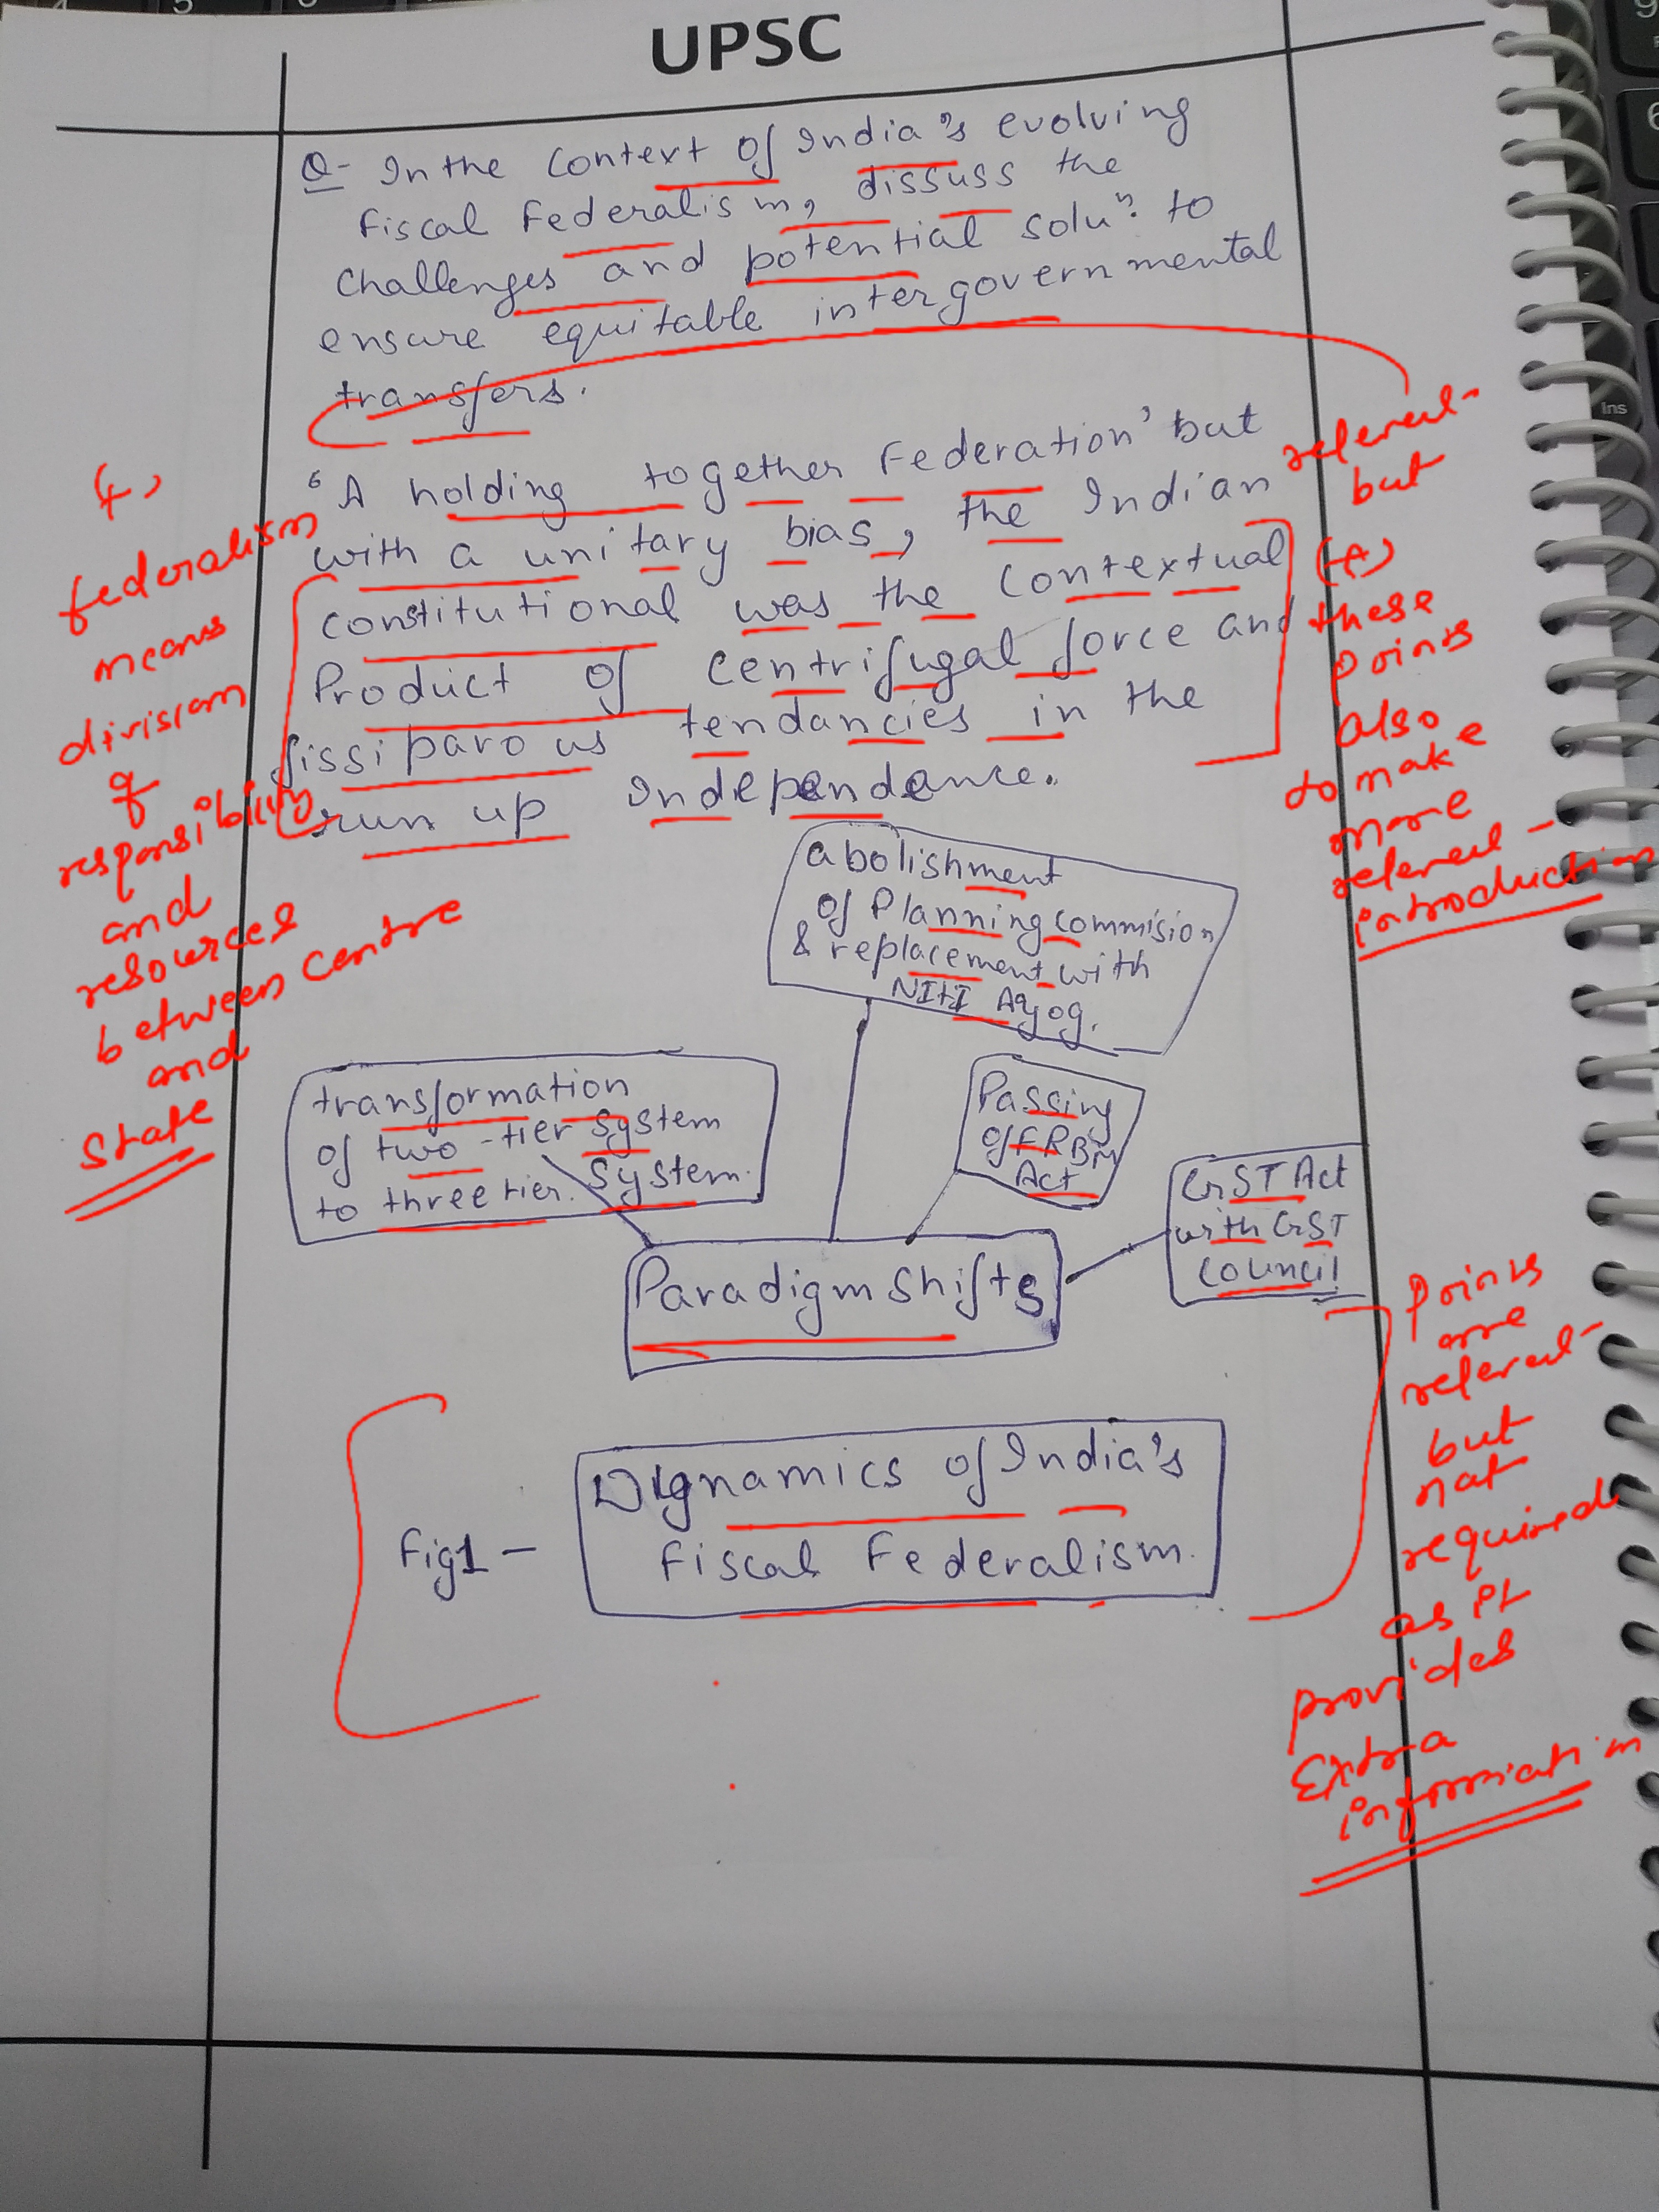 UPSC
Q- In the context of India's evolving
Fiscal Federalism, dissuss the
challenges and potential soluⁿ. to
ensure equitable intergovernmental
transfers.
'A holding together Federation' but
with a unitary bias, the Indian
constitutional was the contextual
Product of centrifugal force and
fissiparous tendancies in the
run up independance.
abolishment
of Planning commision
& replacement with
NITI Ayog.
transformation
of two-tier system
to three tier. System.
Passing
of FRBM
Act
GST Act
with GST
Council
Paradigm shifts
Fig1 -
Dynamics of India's
Fiscal Federalism.
federalism
means
division
of
responsibility
and
resources
between centre
and
State
relevant
but
(+)
these
points
also
to make
more
relevant
introduction
Points
are
relevant
but
not
required
as it
provides
Extra
information
Ins